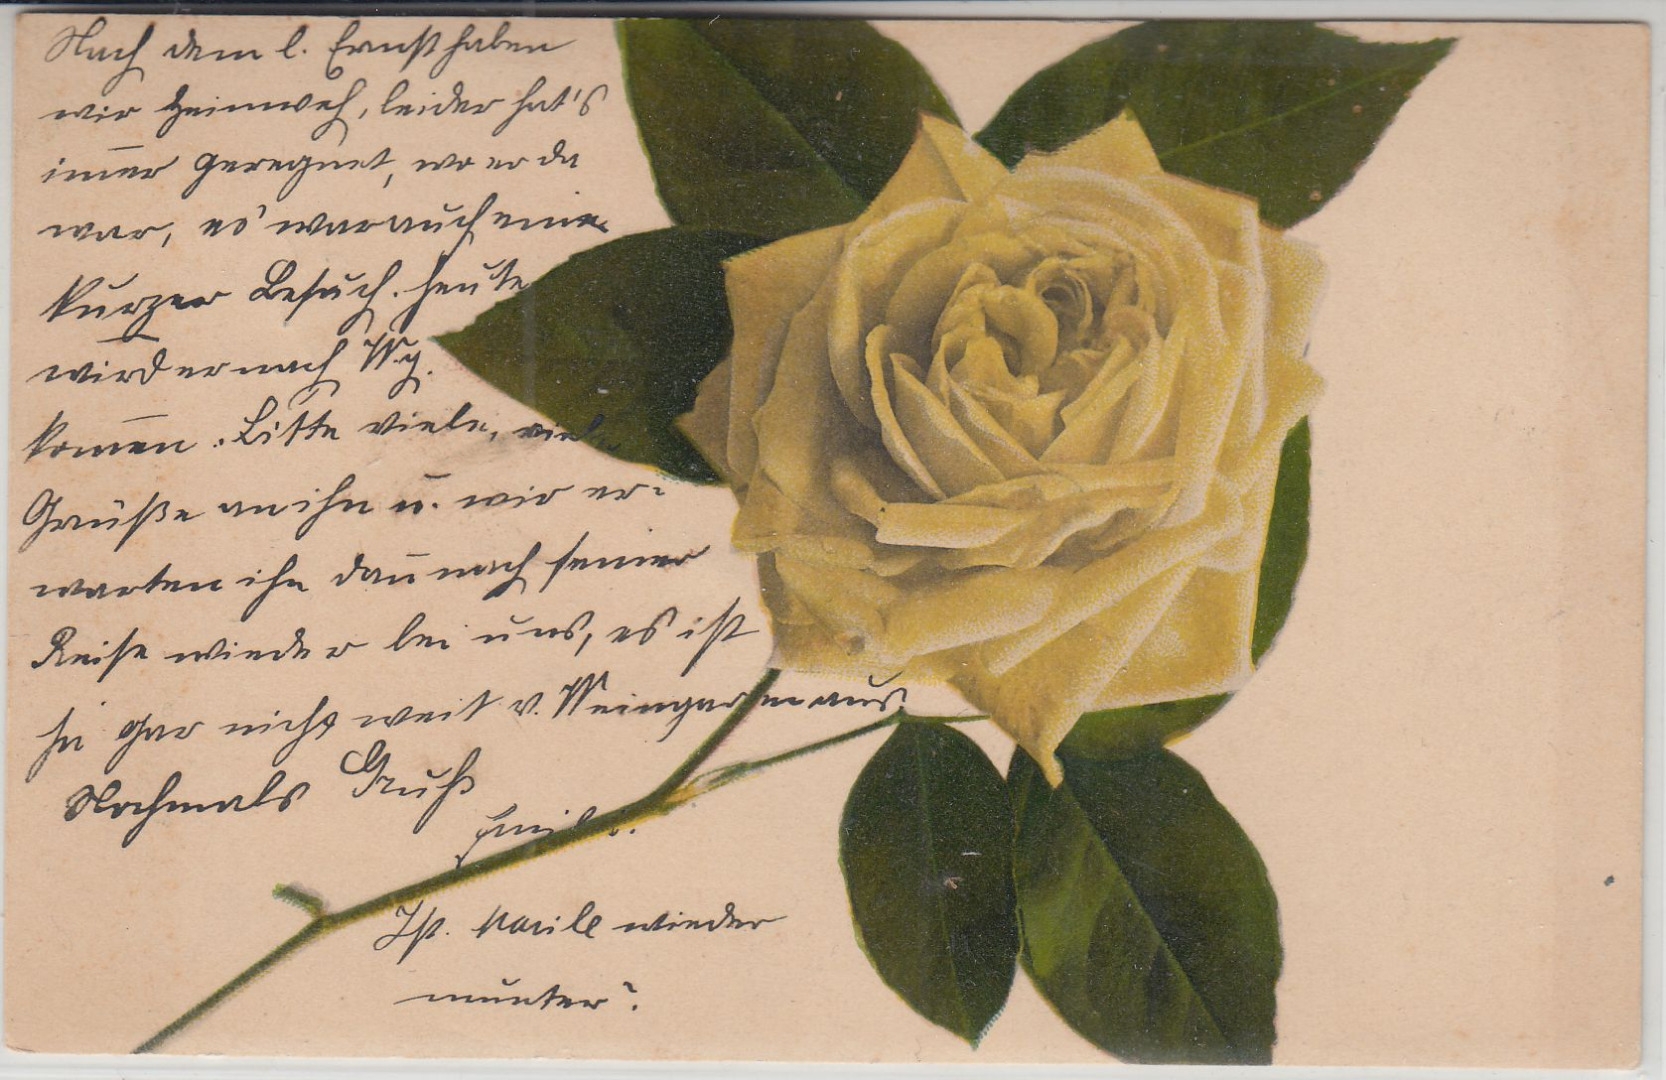 Nach dem l. Ernst haben
wir Heimweh, leider hat's
im̄er geregnet, wo er da
war, es war auch eine
kurzer Besuch. Heute
wird er nach W.g.
kom̄en. Bitte viele, viele
Grüße an ihn u. wir er-
warten ihn dan̄ nach seiner
Reise wieder bei uns, es ist
ja gar nicht weit v. Weingarten aus.
Nochmals Gruß
Ist Marile wieder
munter?